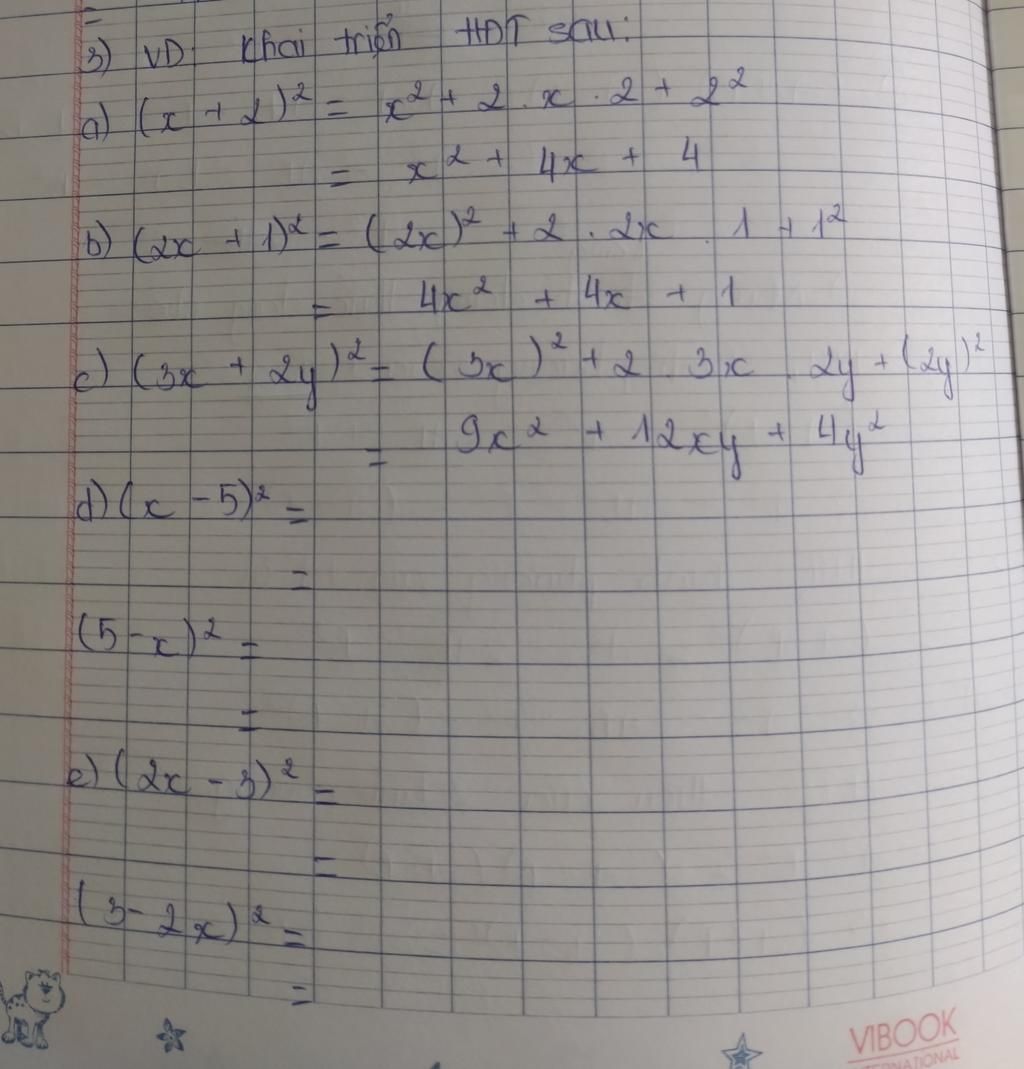 3) VD: Khai triển HĐT sau:
a) (x + 2)² = x² + 2 . x . 2 + 2²
= x² + 4x + 4
b) (2x + 1)² = (2x)² + 2 . 2x . 1 + 1²
= 4x² + 4x + 1
c) (3x + 2y)² = (3x)² + 2 . 3x . 2y + (2y)²
= 9x² + 12xy + 4y²
d) (x - 5)² =
=
(5 - x)² =
=
e) (2x - 3)² =
=
(3 - 2x)² =
=
VIBOOK
INTERNATIONAL